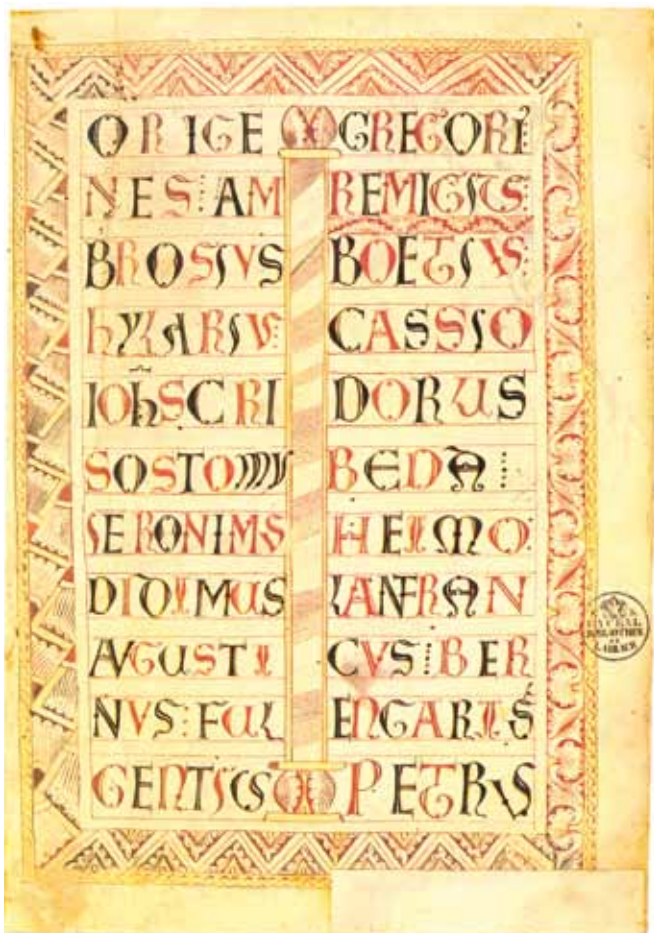 ORIGE
NES : AM
BROSIVS
hYLARIV :
IOhSCRI
SOSTOMV
IERONIMS
DIDIMUS
AVGUSTI
NVS : FUL
GENTIUS
GREGORI :
REMIGIUS :
BOETIVS :
CASSIO
DORUS
BEDA :
HEIMO :
LANFRAN
CVS : BER
ENGARIS
PETRVS
LAIBACH